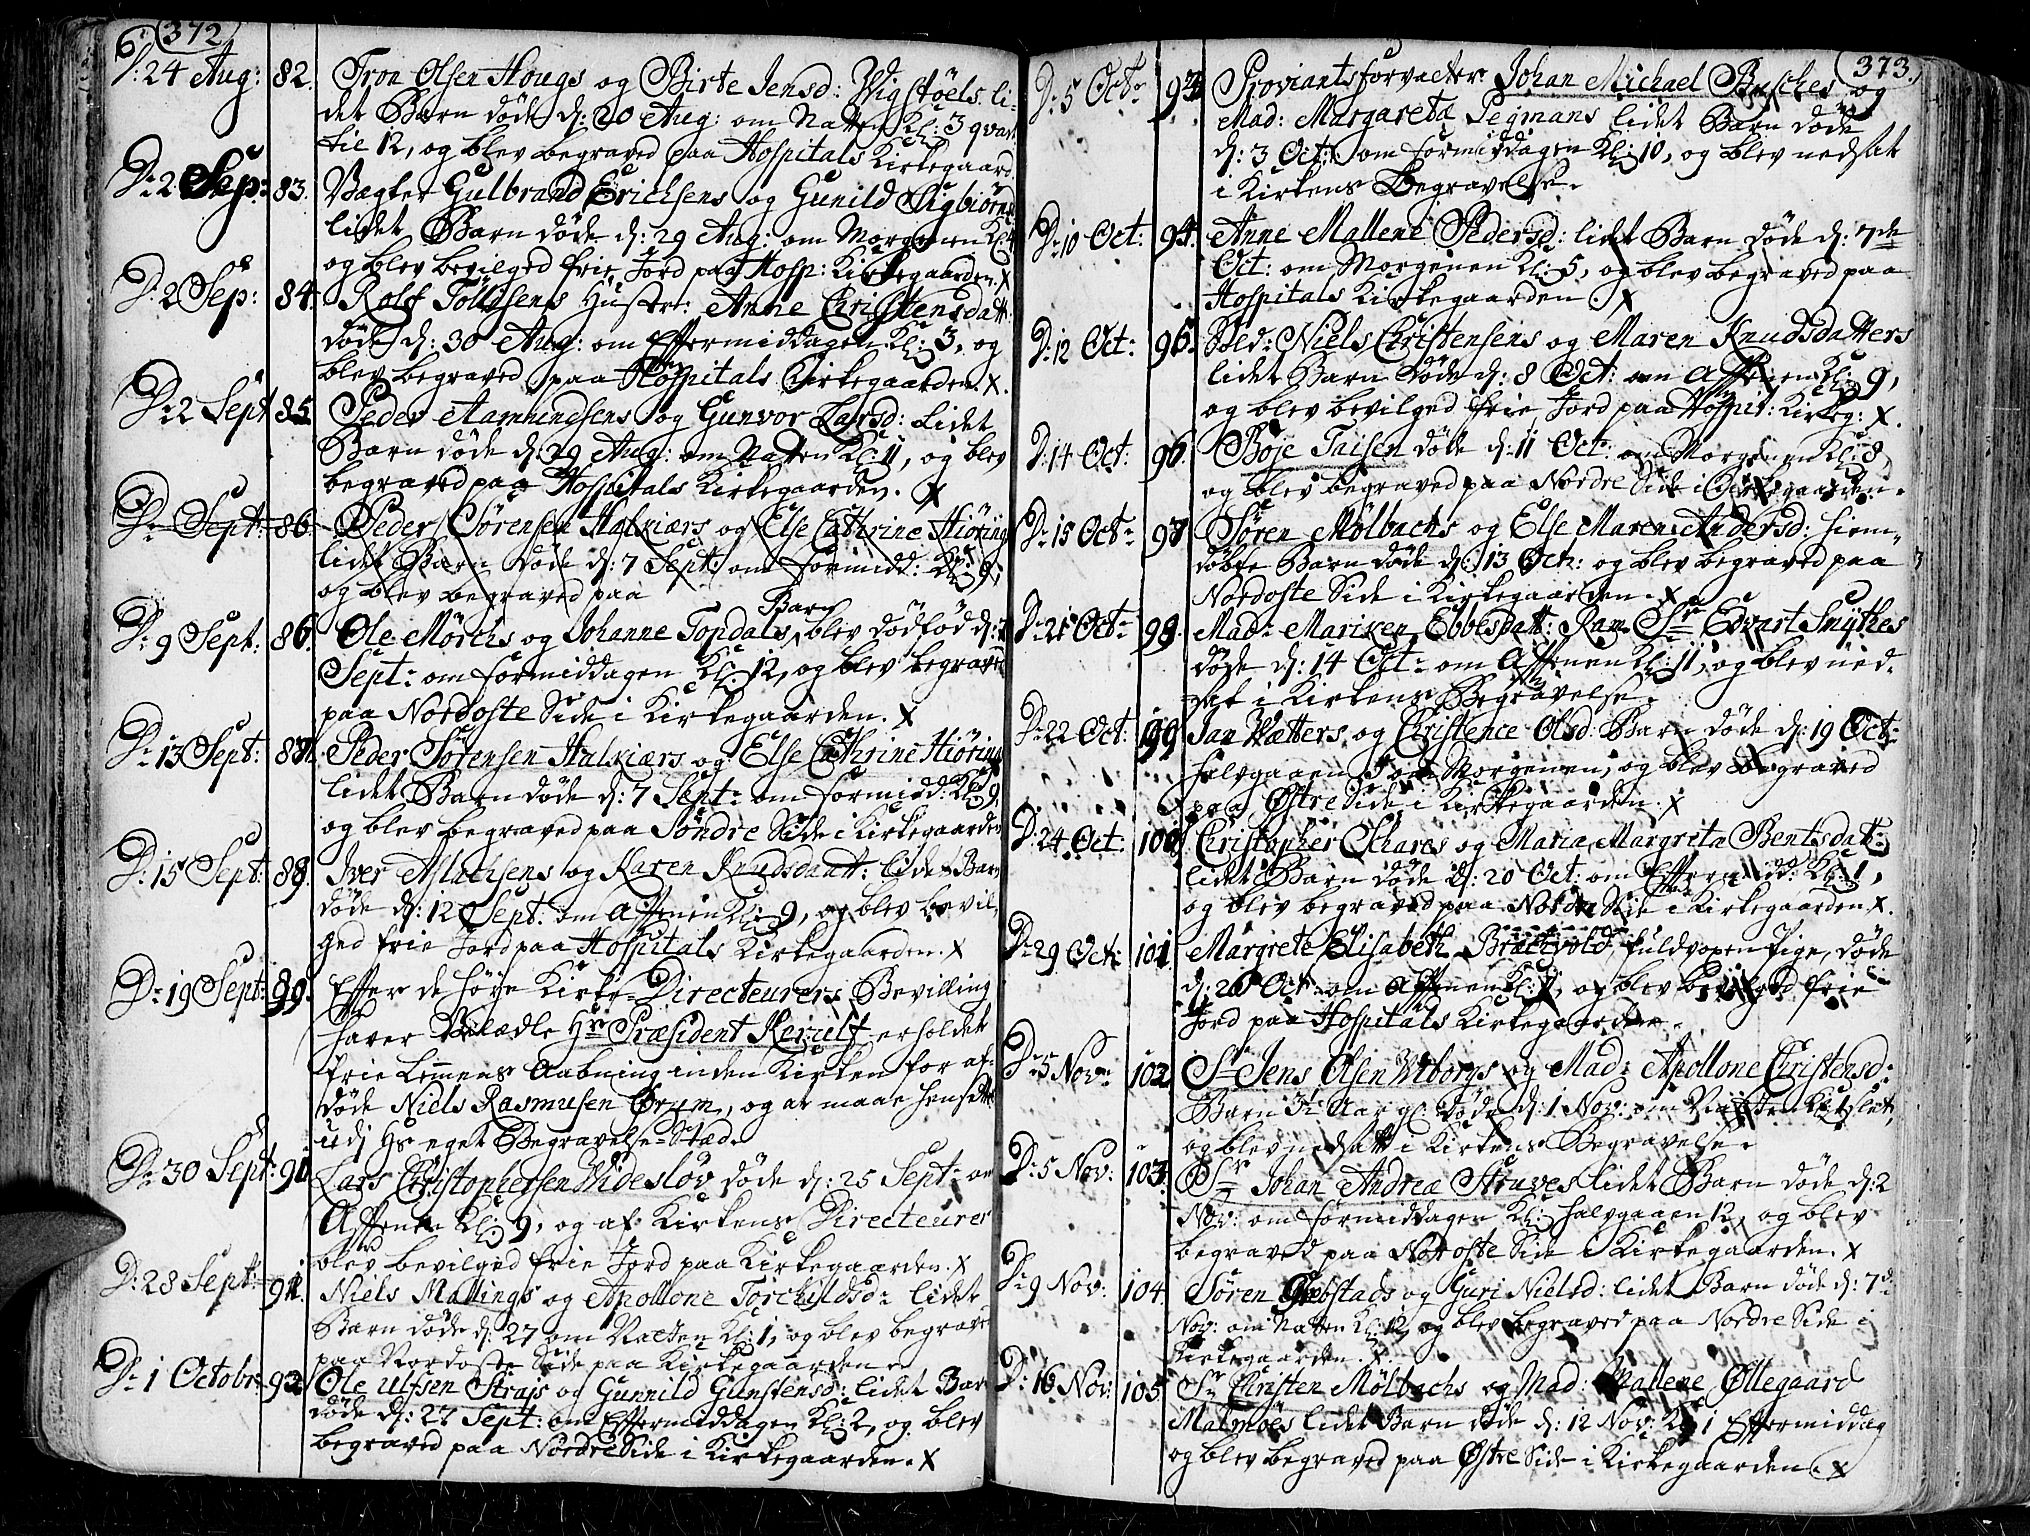 372
D: 24 Aug: 82. Tron Olsen Hougs og Birte Jensd: Wigstøels li-
det Barn døde d: 20 Aug: om Natten Kl: 3 qvart
til 12, og blev begraved paa Hospitals Kirkegaard
D: 2 Sep: 83. Vegter Gulbrand Erichsens og Gunild Sigbiørns
lidet Barn døde d: 29 Aug: om Morgenen Kl: 4
og blev bevilged frie Jord paa Hosp: Kirkegaarden. X
D: 2 Sep: 84. Rolf Tollefsens Hustru: Anne Christensdatt
døde d: 30 Aug: om Eftermiddagen Kl: 3, og
blev begraved paa Hospitals Kirkegaarden. X.
D: 2 Sept 85. Peder Aamundsens og Gunvor Larsd: Lidet
Barn døde d: 29 Aug: om Natten Kl: 11, og blev
begraved paa Hospitals Kirkegaarden. X
D: Sept: 86. Peder Sørensen Halkiærs og Else Cathrine Hiøring
lidet Barn døde d: 7 Sept: om Formidd: Kl: 9,
og blev begraved paa
D: 9 Sept: 86. Ole Mørchs og Johanne Topdals Barn blev dødfød d:
Sept: om Formiddagen Kl: 12, og blev begraved
paa Nordoste Side i Kirkegaarden. X
D: 13 Sept: 87. Peder Sørensen Halkiærs og Else Cathrine Hiøring
lidet Barn døde d: 7 Sept: om Formidd: Kl: 9
og blev begraved paa Søndre Side i Kirkegaarden
D: 15 Sept: 88. Iver Aslachsens og Karen Knudsdatt: lidet Barn
døde d: 12 Sept: om Aftenen Kl: 9, og blev bevil-
ged frie Jord paa Hospitals Kirkegaarden. X
D: 19 Sept: 89. Efter de høye Kirke-Directeurers Bevilling
haver Velædle Hr Præsident Kerulf erholdet
frie Lemens Aabning inden Kirken for af-
døde Niels Rasmusen Ørum, og at maae hensettes
udj Hs eget Begravelse-Stæd.
D: 30 Sept: 90. Lars Christophersen Wideslov døde d: 25 Sept: om
Aftenen Kl: 9, og af Kirkens Directeurer
blev bevilged frie Jord paa Kirkegaarden. X
D: 28 Sept: 91. Niels Mallings og Apollone Torchildsd: lidet
Barn døde d: 27 om Natten Kl: 1, og blev begraved
paa Nordoste Side paa Kirkegaarden
D: 1 Octobr: 92. Ole Ulfsen Strajs og Gunnild Gunstensd: lidet Bar
døde d: 27 Sept: om Eftermiddagen Kl: 2, og blev
begraved paa Nordre Side i Kirkegaarden. X
373.
D: 5 Octr 93. Proviantsforvalter Johan Michael Busches og
Mad: Margareta Segmans lidet Barn døde
d: 3 Oct: om Formiddagen Kl: 10, og blev nedsat
i Kirkens Begravelse.
D: 10 Oct: 94. Anne Mallene Pedersd: lidet Barn døde d: 7de
Oct: om Morgenen Kl: 5, og blev begraved paa
Hospitals Kirkegaarden. X
D: 12 Oct: 95. Sold: Niels Christensens og Maren Knudsdatters
lidet Barn døde d: 8 Oct: om Aftenen Kl: 9,
og blev bevilged frie Jord paa Hospit: Kirkeg: X.
D: 14 Oct: 96. Boje Taisen døde d: 11 Oct: om Morgenen Kl: 8,
og blev begraved paa Nordre Side i Kirkegaarden.
D: 15 Oct: 97. Søren Mølbachs og Else Maren Andersd: hiem-
døbte Barn døde d: 13 Oct: og blev begraved paa
Nordoste Side i Kirkegaarden. X
D: 21 Oct: 98. Mad: Mariken Ebbesdatt: Sr Edvart Smythes
døde d: 14 Oct: om Aftenen Kl: 11, og blev ned-
sat i Kirkens Begravelse.
D: 22 Oct: 99 Jan Wetters og Christence Olsd: Barn døde d: 19 Oct:
halvgaaen om Morgenen, og blev begraved
paa Østre Side i Kirkegaarden. X
D: 24 Oct: 100. Christopher Schares og Maria Margreta Bentsdat:
lidet Barn døde d: 20 Oct: om Eftermidd: Kl: 1,
og blev begraved paa Nordre Side i Kirkegaarden. X.
D: 29 Oct: 101. Margrete Elisabeth Brechvold, fuldvoxen Pige, døde
d: 26 Oct: om Aftenen Kl: og blev bevilged frie
Jord paa Hospitals Kirkegaarden.
D: 5 Nov: 102 Sr Jens Olsen Wiborgs og Mad: Apollone Christensd:
Barn 3 1/2 Aar gl: døde d: 1 Nov: om Natten Kl: 1 slet,
og blev nedsatt i Kirkens Begravelse.
D: 5 Nov: 103. Sr Johan Andrea Struves lidet Barn døde d: 2
Nov: om Formiddagen Kl: halvgaaen 12, og blev
begraved paa Nordoste Side i Kirkegaarden. X
D: 9 Nov: 104. Søren Grebstads og Guri Nielsd: lidet Barn døde d: 7de
Nov: om Natten Kl: 12, og blev begraved paa Nordre Side i
Kirkegaarden. X.
D: 16 Nov: 105 Sr Christen Mølbachs og Mad: Mallene Øllegaard
Malmøes lidet Barn døde d: 12 Nov: Kl: 1 Eftermiddag
og blev begraved paa Østre Side i Kirkegaarden. X